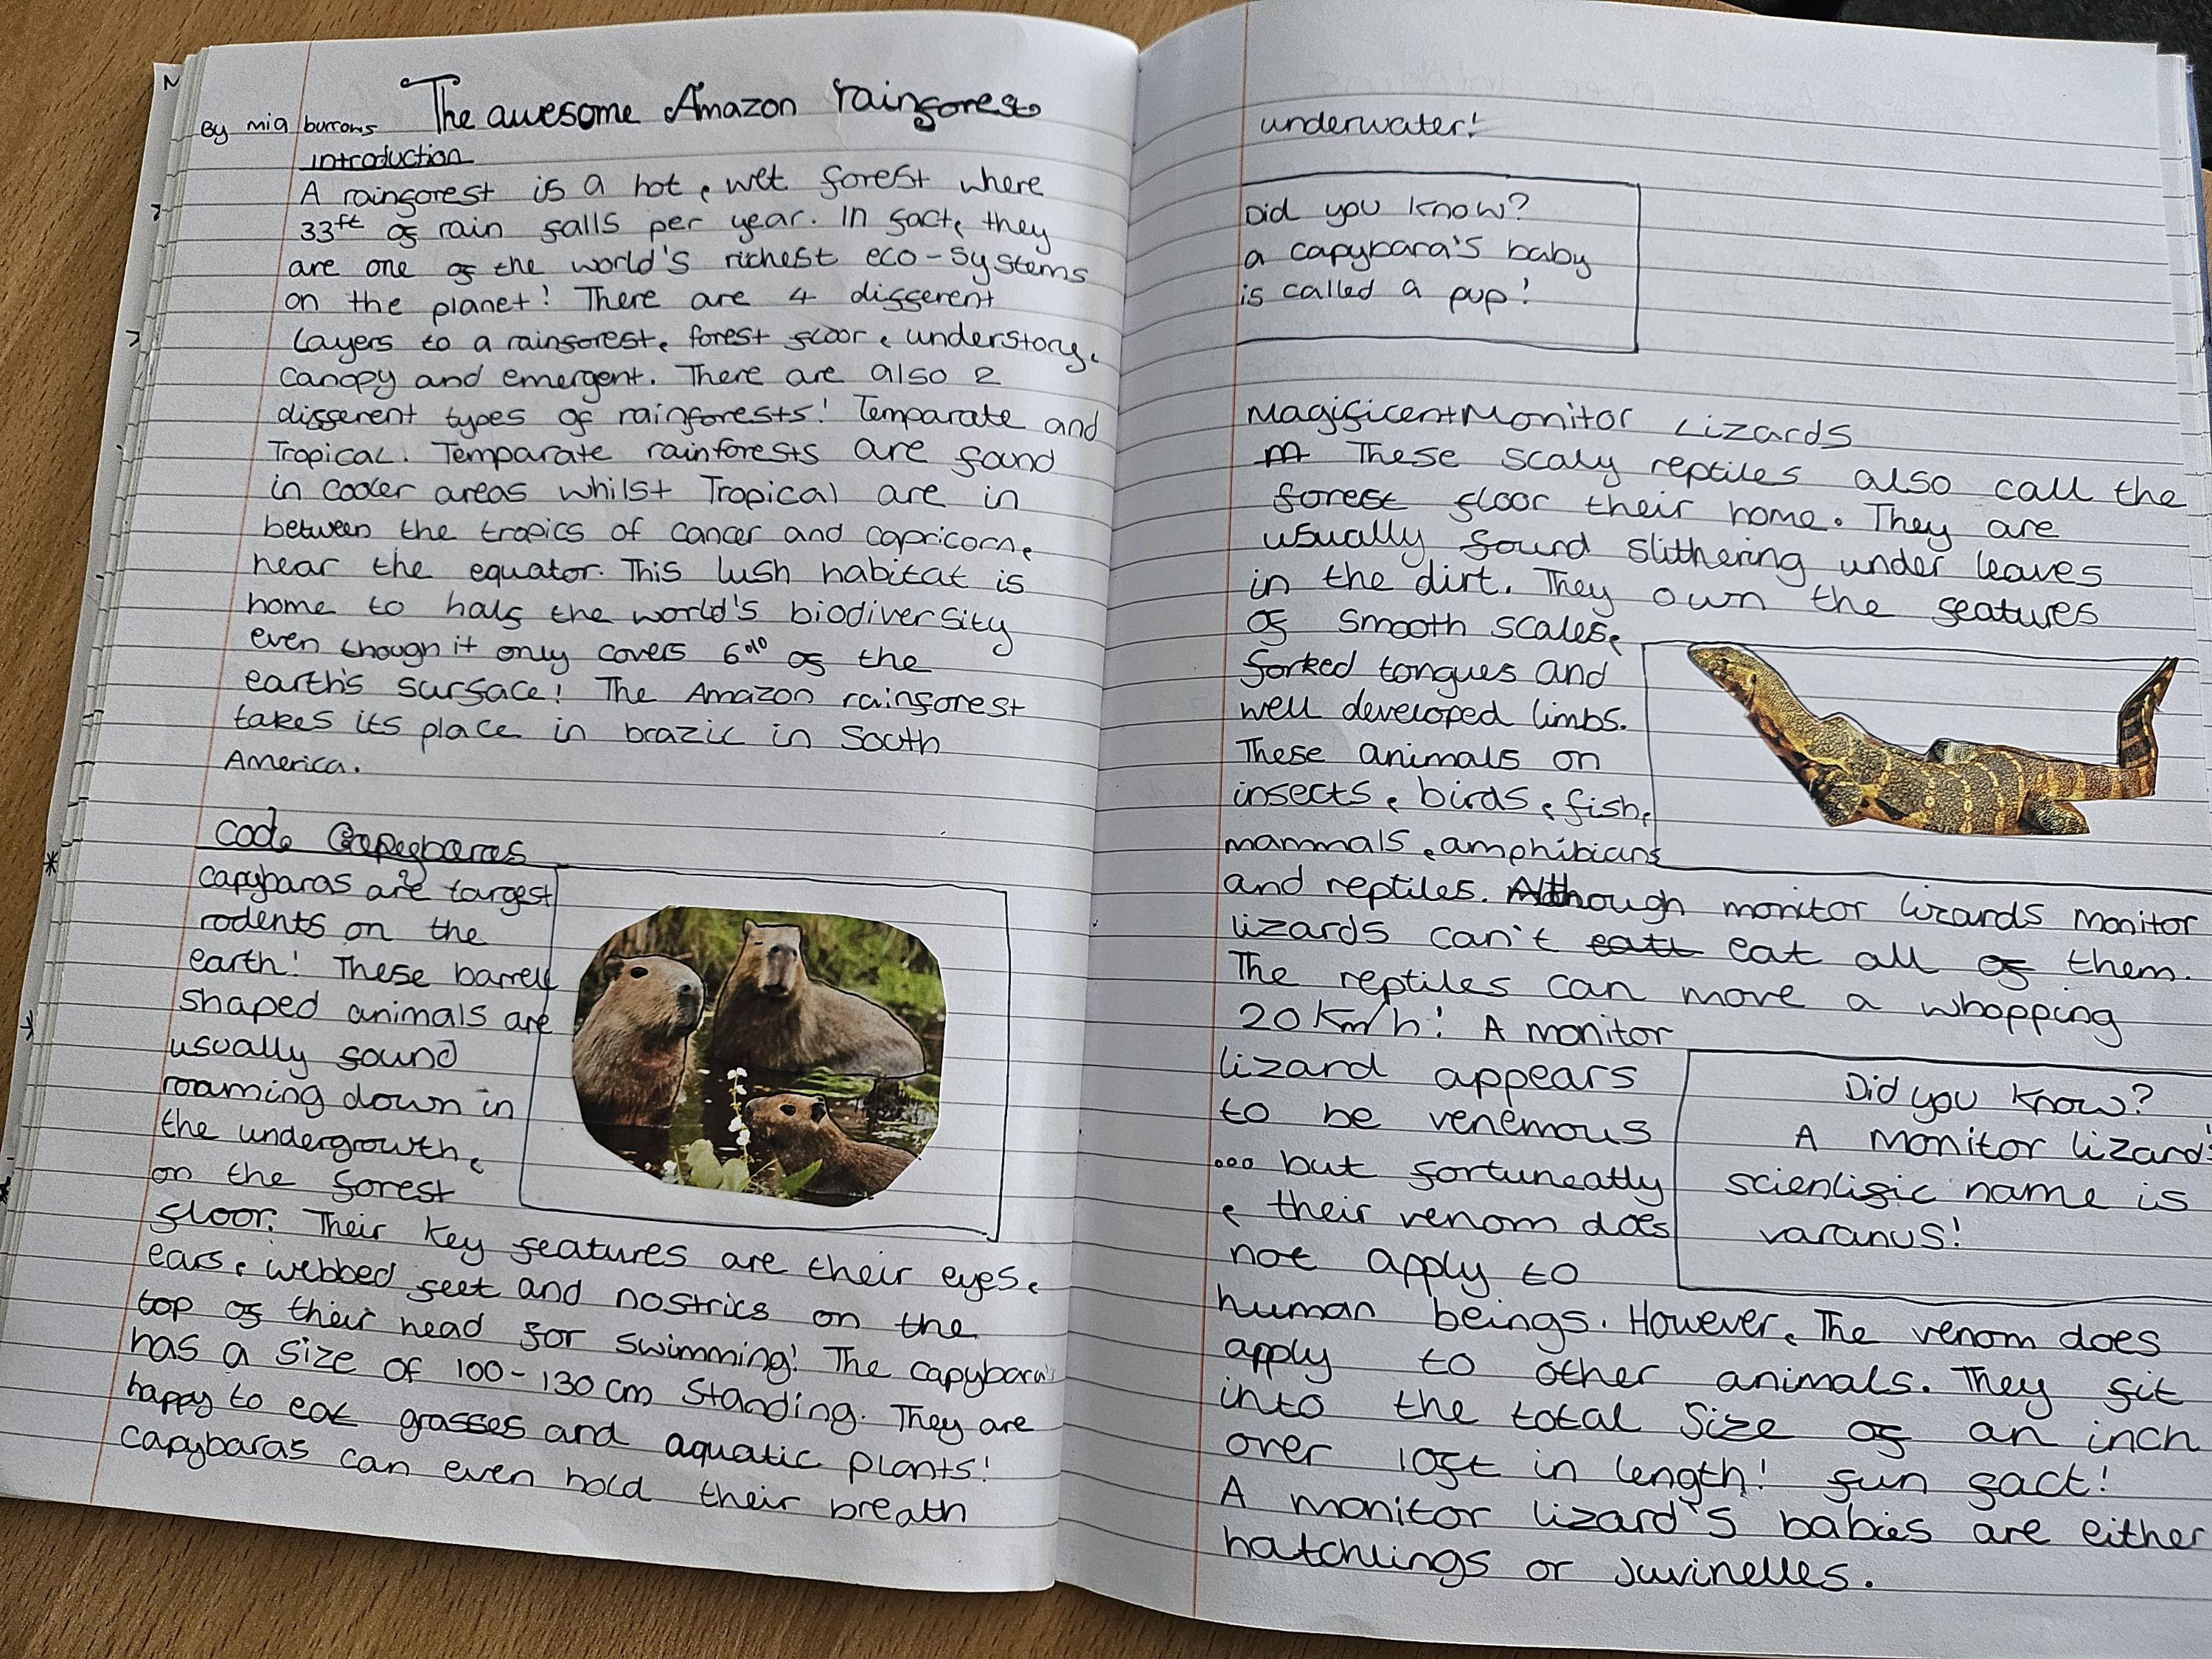 The awesome Amazon rainforest
By mia burrows
introduction
A rainforest is a hot, wet forest where
33ft of rain falls per year. In fact, they
are one of the world's richest eco-systems
on the planet! There are 4 different
layers to a rainforest, forest floor, understory,
canopy and emergent. There are also 2
different types of rainforests! Temparate and
Tropical. Temparate rainforests are found
in cooler areas whilst Tropical are in
between the tropics of cancer and capricorn,
near the equator. This lush habitat is
home to half the world's biodiversity
even though it only covers 6% of the
earth's surface! The Amazon rainforest
takes its place in brazil in South
America.
Capybaras
capybaras are largest
rodents on the
earth! These barrell
shaped animals are
usually found
roaming down in
the undergrowth,
on the forest
floor. Their key features are their eyes,
ears, webbed feet and nostrils on the
top of their head for swimming! The capybara's
has a size of 100-130cm standing. They are
happy to eat grasses and aquatic plants!
capybaras can even hold their breath
underwater!
Did you know?
a capybara's baby
is called a pup!
Magificent Monitor Lizards
These scaly reptiles also call the
forest floor their home. They are
usually found slithering under leaves
in the dirt. They own the features
of smooth scales,
forked tongues and
well developed limbs.
These animals on
insects, birds, fish,
mammals, amphibians
and reptiles. Although monitor lizards monitor
lizards can't eat all of them.
The reptiles can move a whopping
20km/h! A monitor
lizard appears
to be venemous
... but fortuneatly
, their venom does
not apply to
human beings. However, The venom does
apply to other animals. They fit
into the total size of an inch
over 10ft in length! fun fact!
A monitor lizard's babies are either
hatchlings or juvinelles.
Did you know?
A monitor lizard's
scientific name is
varanus!